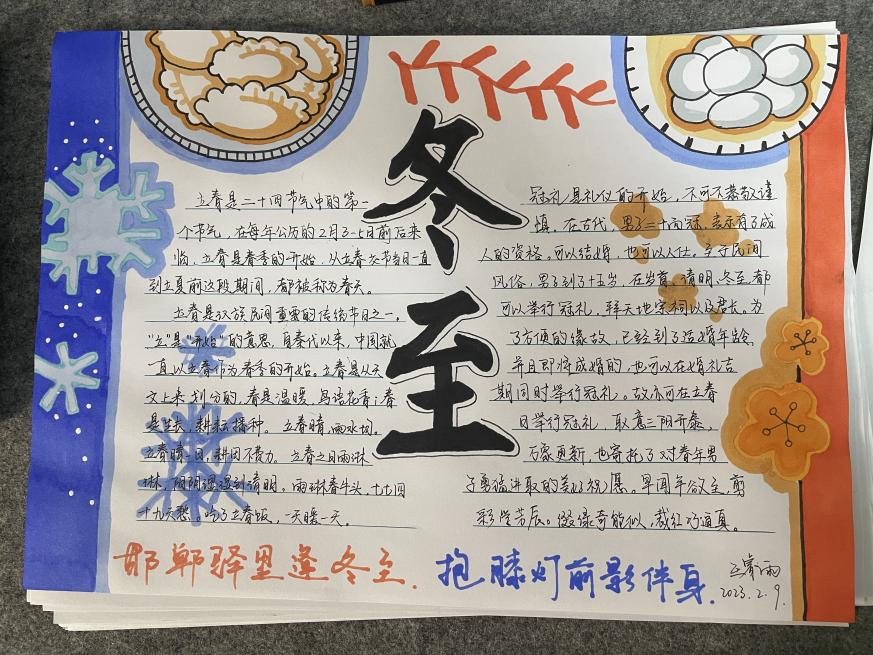 冬至
立春是二十四节气中的第一
个节气，在每年公历的2月3-5日前后来
临，立春是春季的开始，从立春次节当日一直
到立夏前这段期间，都被称为春天。
立春是汉族民间重要的传统节日之一。
"立"是"开始"的意思，自秦代以来，中国就
一直以立春作为春季的开始。立春是从天
文上来划分的，春是温暖，鸟语花香；春
是生长，耕耘播种。立春晴，雨水匀。
立春晴一日，耕田不费力。立春之日雨淋
淋，阴阴湿湿到清明。雨淋春牛头，七七四
十九天愁。吃了立春饭，一天暖一天。
冠礼是礼仪的开始，不可不恭敬谨
慎。在古代，男子二十而冠，表示有了成
人的资格，可以结婚，也可以入仕。至于民间
风俗，男子到了十五岁，在岁首、清明、冬至，都
可以举行冠礼，拜天地宗祠以及君长。为
了方便的缘故，已经到了适婚年龄
并且即将成婚的，也可以在婚礼吉
期同时举行冠礼。故亦可在立春
日举行冠礼，取意三阳开泰，
万象更新，也寄托了对青年男
子勇猛进取的美好祝愿。早闻年欲至，剪
彩学芳辰。缀绿奇能似，裁红巧逼真。
邯郸驿里逢冬至.抱膝灯前影伴身.
2023.2.9.